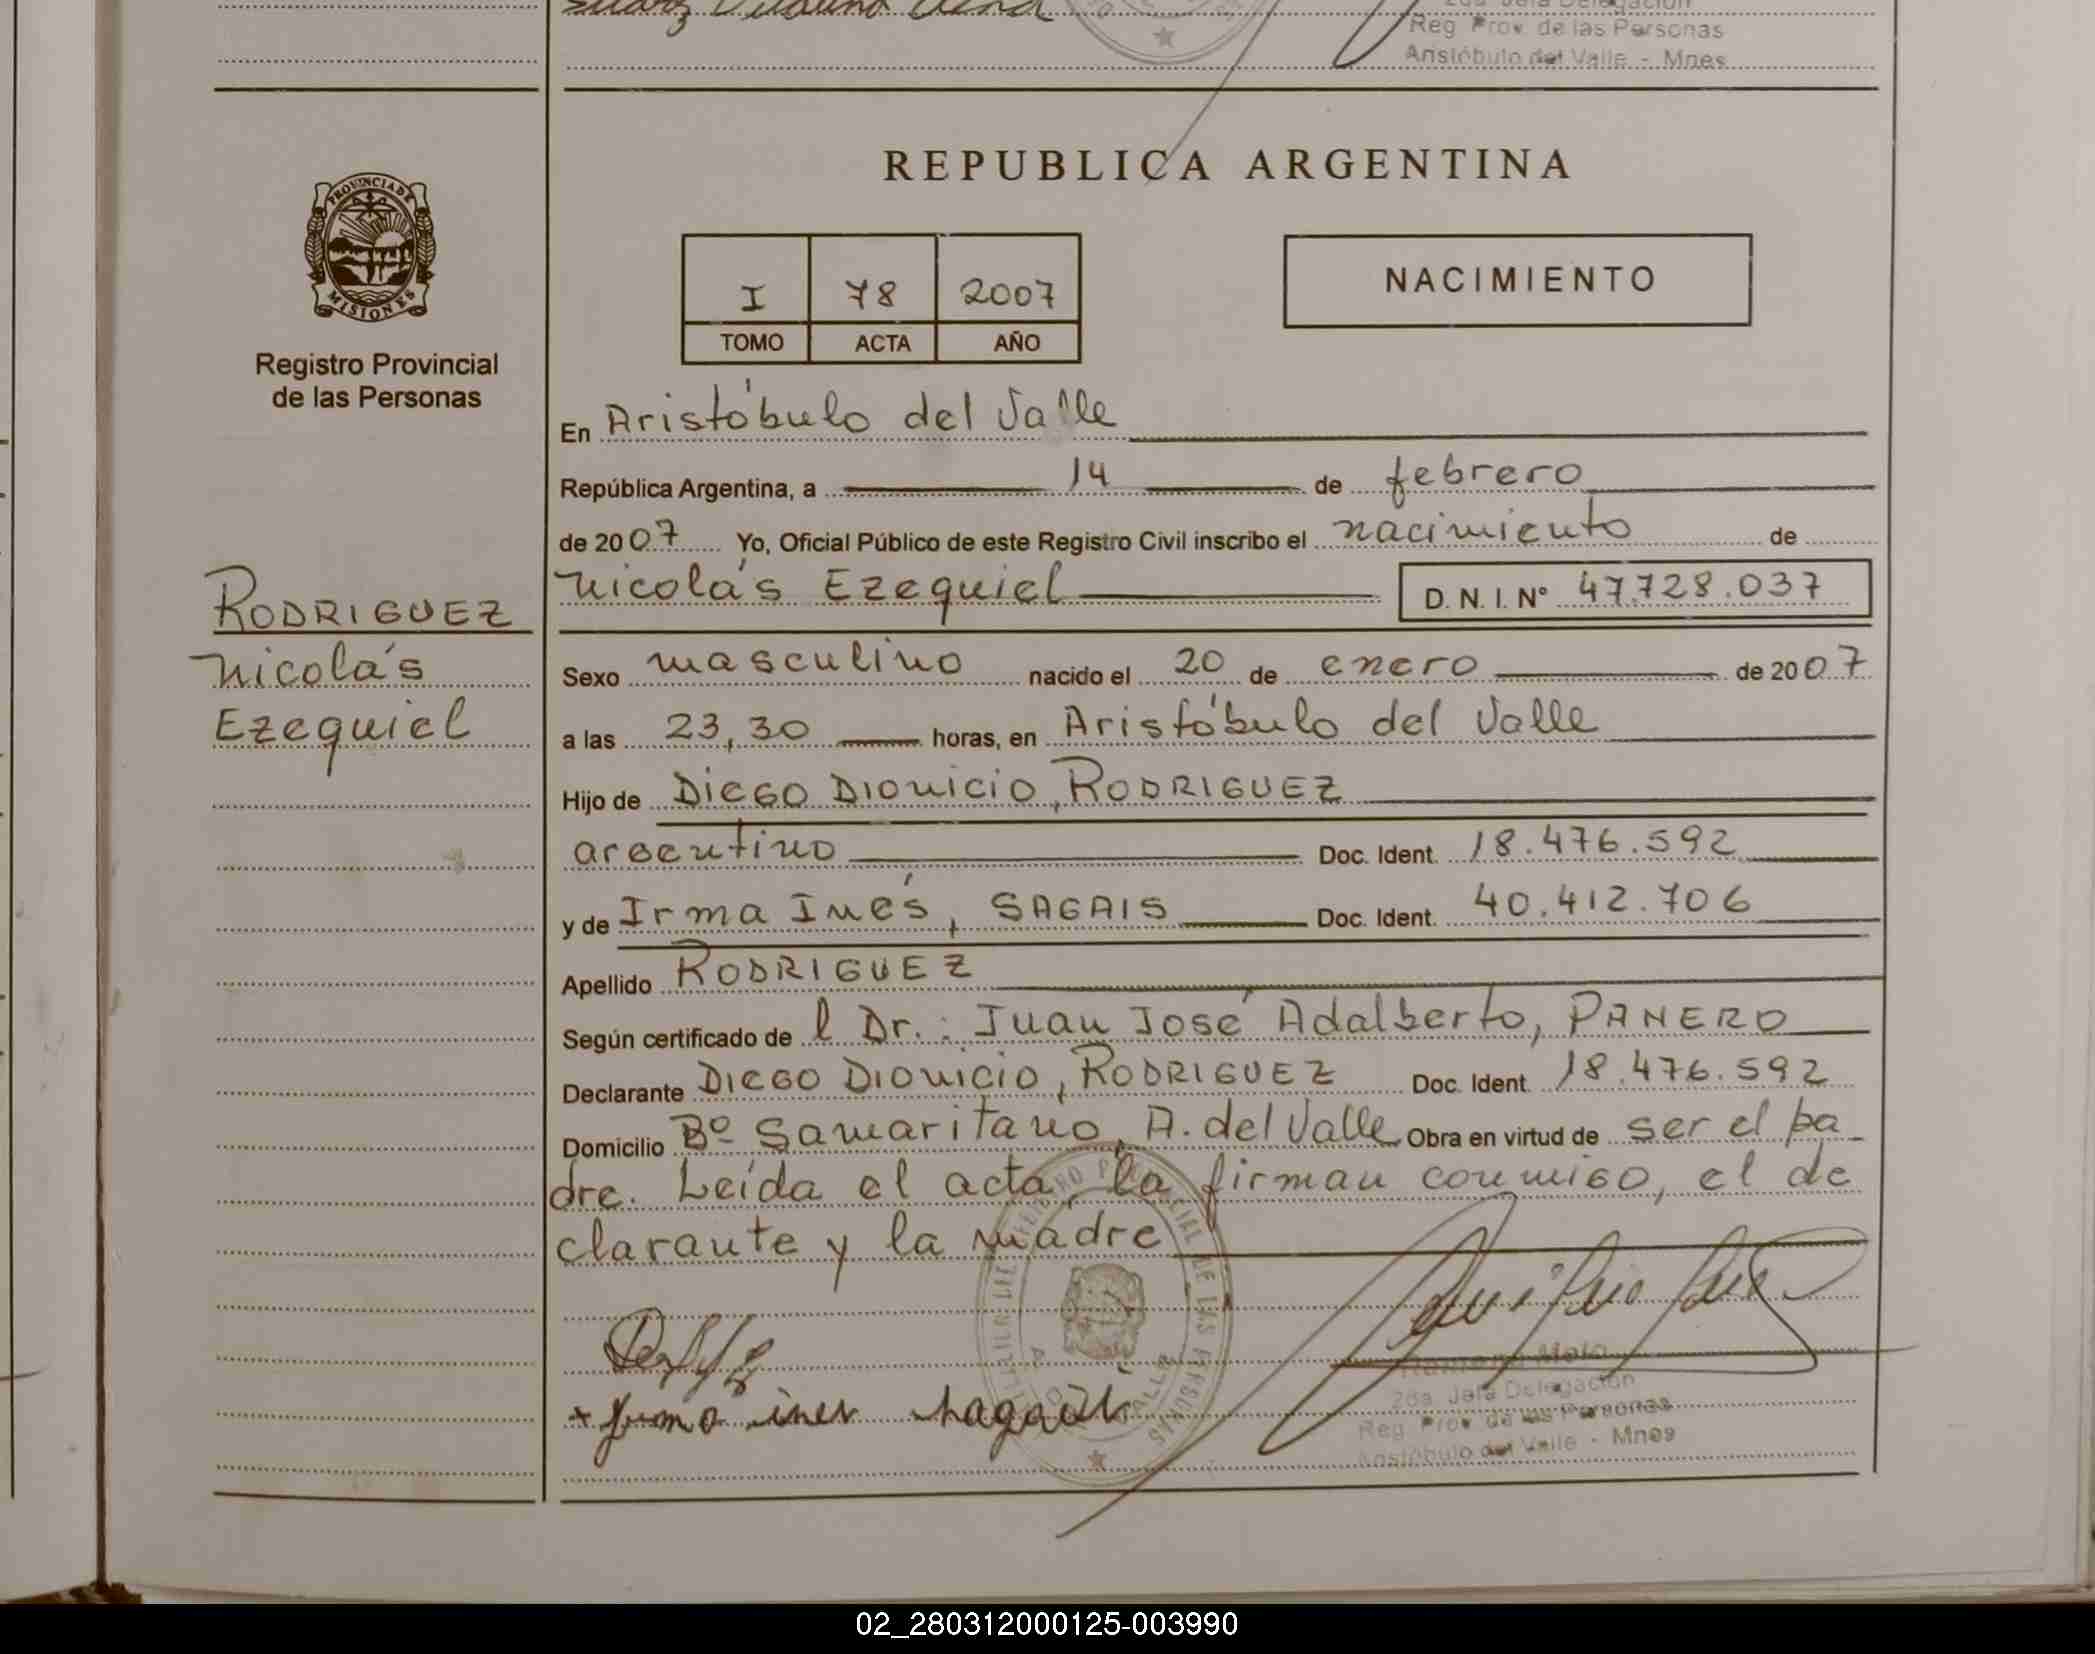 2da. Jefa Delegación
Reg. Prov. de las Personas
Aristóbulo del Valle - Mnes
PROVINCIA DE
MISIONES
Registro Provincial
de las Personas
REPUBLICA ARGENTINA
I 78 2007
TOMO ACTA AÑO
NACIMIENTO
RODRIGUEZ
Nicolás
Ezequiel
En Aristóbulo del Valle
República Argentina, a 14 de febrero
de 2007 Yo, Oficial Público de este Registro Civil inscribo el nacimiento de
Nicolás Ezequiel D. N. I. N° 47.728.037
Sexo masculino nacido el 20 de enero de 2007
a las 23,30 horas, en Aristóbulo del Valle
Hijo de Diego Dionicio, RODRIGUEZ
argentino Doc. Ident. 18.476.592
y de Irma Inés, SAGAIS Doc. Ident. 40.412.706
Apellido RODRIGUEZ
Según certificado de l Dr.: Juan José Adalberto, PANERO
Declarante Diego Dionicio, RODRIGUEZ Doc. Ident. 18.476.592
Domicilio Bº Samaritano, A. del Valle Obra en virtud de ser el pa
dre. Leída el acta, la firman conmigo, el de
clarante y la madre
2da. Jefa Delegación
Reg. Prov. de las Personas
Aristóbulo del Valle - Mnes
02_280312000125-003990